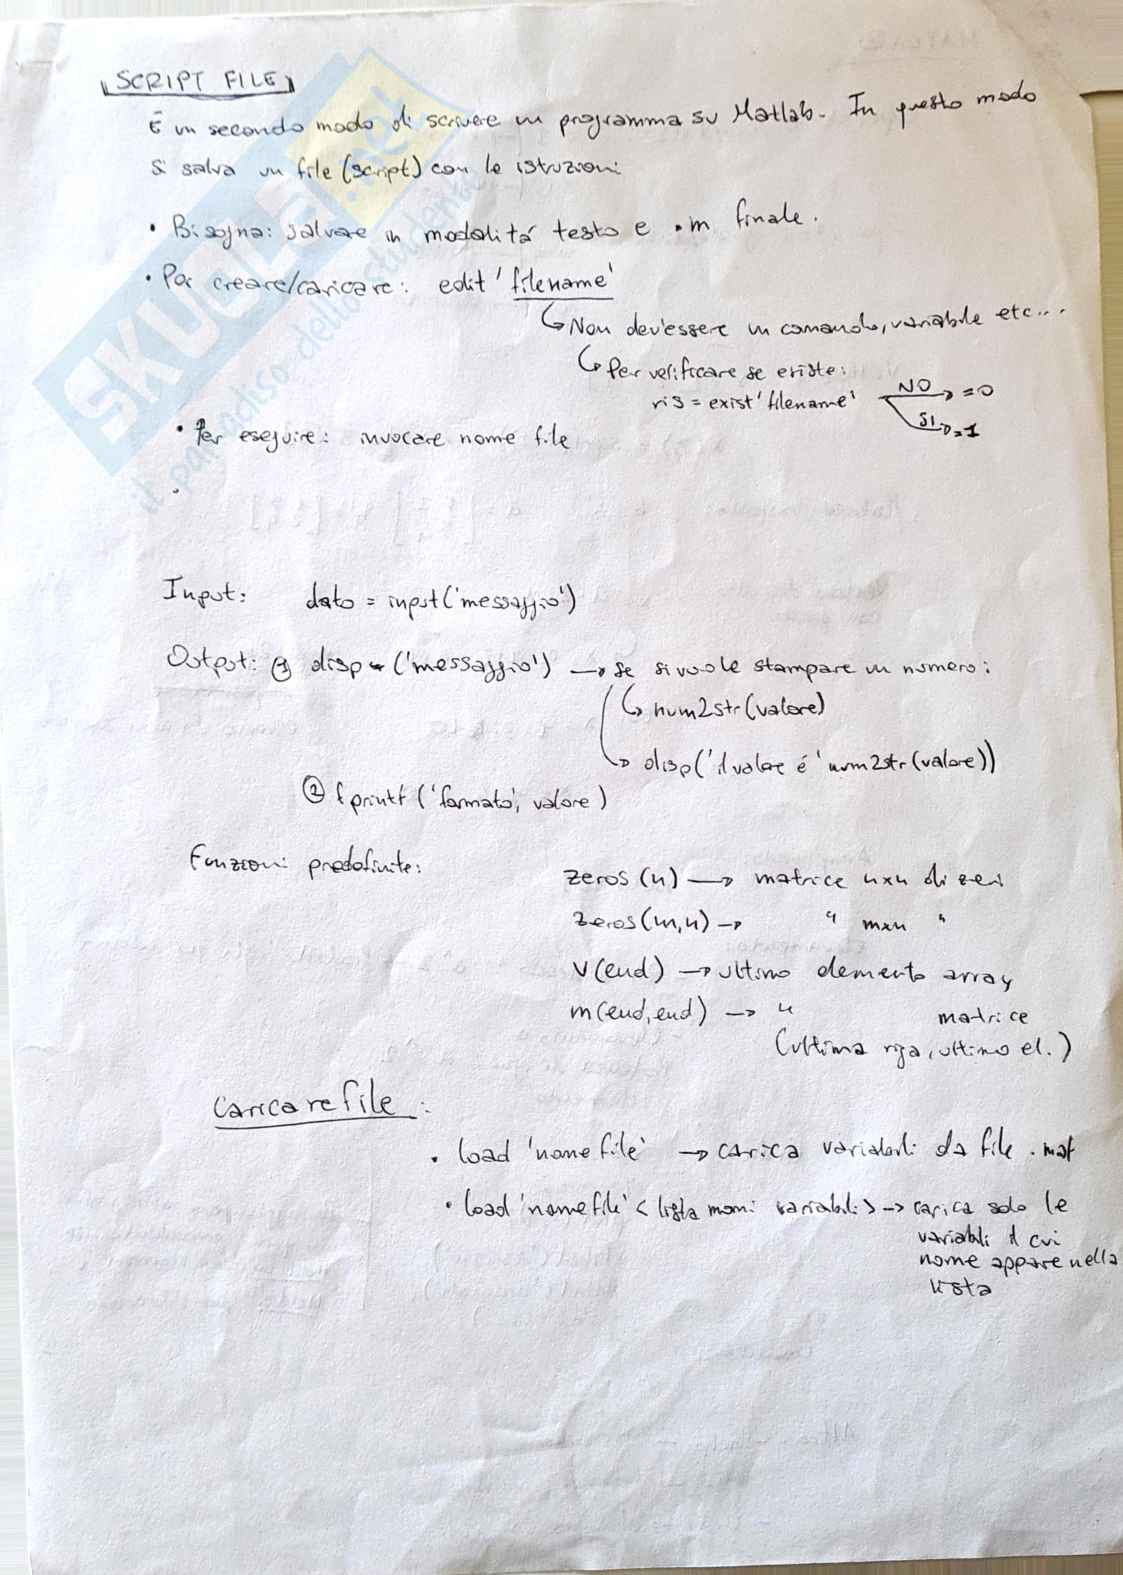 SCRIPT FILE
È un secondo modo di scrivere un programma su Matlab. In questo modo
si salva un file (script) con le istruzioni
• Bisogna: salvare in modalitá testo e .m finale.
• Per creare/caricare: edit 'filename'
↳ Non dev'essere un comando, variabile etc...
↳ Per verificare se esiste:
ris = exist 'filename' NO → =0
SI → =1
• Per eseguire: invocare nome file
Input: dato = input('messaggio')
Output: ① disp ('messaggio') → se si vuole stampare un numero:
↳ num2str(valore)
↳ disp('il valore é' num2str(valore))
② fprintf('formato', valore)
Funzioni predefinite:
zeros(n) → matrice nxn di zeri
zeros(m,n) → " mxn "
v(end) → ultimo elemento array
m(end,end) → " matrice
(ultima riga, ultimo el.)
Caricare file:
• load 'nome file' → carica variabili da file .mat
• load 'nome file' < lista nomi variabili > → carica solo le
variabili il cui
nome appare nella
lista
SKUOLA.net
il paradiso dello studente